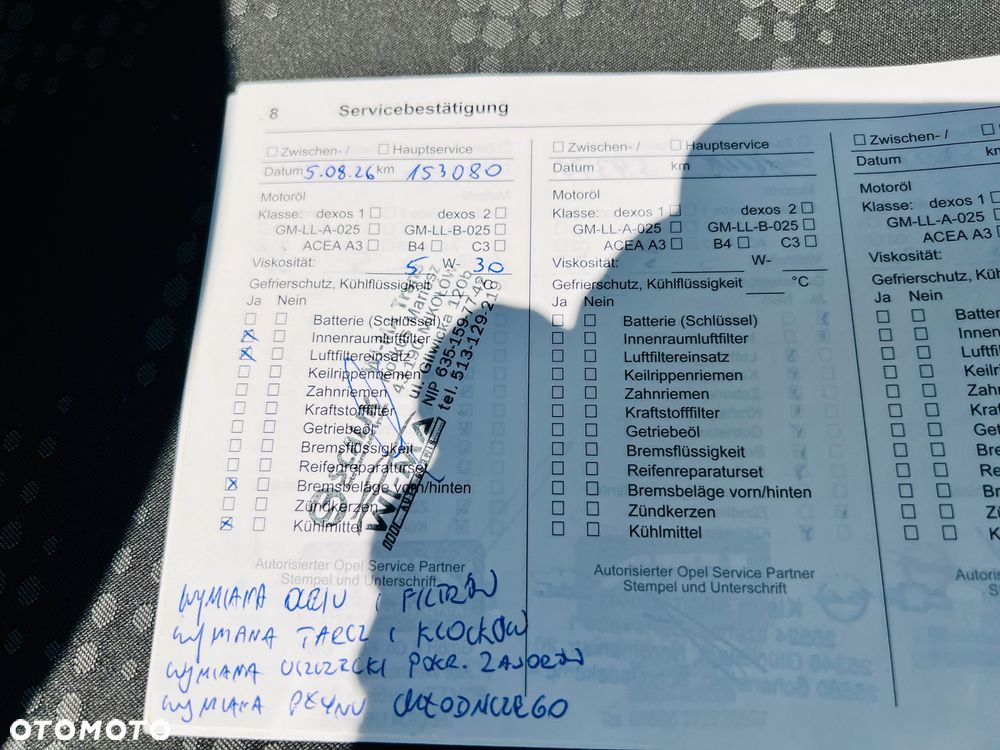 8 Servicebestätigung
☐ Zwischen- / ☐ Hauptservice
Datum 5.08.26 km 153080
Motoröl
Klasse: dexos 1 ☐ dexos 2 ☐
GM-LL-A-025 ☐ GM-LL-B-025 ☐
ACEA A3 ☐ B4 ☐ C3 ☐
Viskosität: 5 W- 30
Gefrierschutz, Kühlflüssigkeit °C
Ja Nein
☐ ☐ Batterie (Schlüssel)
☒ ☐ Innenraumluftfilter
☒ ☐ Luftfiltereinsatz
☐ ☐ Keilrippenriemen
☐ ☐ Zahnriemen
☐ ☐ Kraftstofffilter
☐ ☐ Getriebeöl
☐ ☐ Bremsflüssigkeit
☐ ☐ Reifenreparaturset
☒ ☐ Bremsbeläge vorn/hinten
☐ ☐ Zündkerzen
☒ ☐ Kühlmittel
ul. Gliwicka 120b
NIP 635-159-77-43
tel. 513-129-219
Autorisierter Opel Service Partner
Stempel und Unterschrift
WYMIANA OLEJU I FILTRÓW
WYMIANA TARCZ I KLOCKÓW
WYMIANA USZCZELKI POKR. ZAWORÓW
WYMIANA PŁYNU CHŁODNICZEGO
☐ Zwischen- / ☐ Hauptservice
Datum km
Motoröl
Klasse: dexos 1 ☐ dexos 2 ☐
GM-LL-A-025 ☐ GM-LL-B-025 ☐
ACEA A3 ☐ B4 ☐ C3 ☐
Viskosität: W-
Gefrierschutz, Kühlflüssigkeit °C
Ja Nein
☐ ☐ Batterie (Schlüssel)
☐ ☐ Innenraumluftfilter
☐ ☐ Luftfiltereinsatz
☐ ☐ Keilrippenriemen
☐ ☐ Zahnriemen
☐ ☐ Kraftstofffilter
☐ ☐ Getriebeöl
☐ ☐ Bremsflüssigkeit
☐ ☐ Reifenreparaturset
☐ ☐ Bremsbeläge vorn/hinten
☐ ☐ Zündkerzen
☐ ☐ Kühlmittel
Autorisierter Opel Service Partner
Stempel und Unterschrift
☐ Zwischen- / ☐
Datum km
Motoröl
Klasse: dexos 1 ☐
GM-LL-A-025 ☐
ACEA A3
Viskosität:
Gefrierschutz, Kühl
Ja Nein
☐ ☐ Batterie
☐ ☐ Innen
☐ ☐ Luftfi
☐ ☐ Keilri
☐ ☐ Zahn
☐ ☐ Kraft
☐ ☐ Getr
☐ ☐ Bren
☐ ☐ Reif
☐ ☐ Bre
☐ ☐ Zü
☐ ☐ K
Autoris
St
OTOMOTO